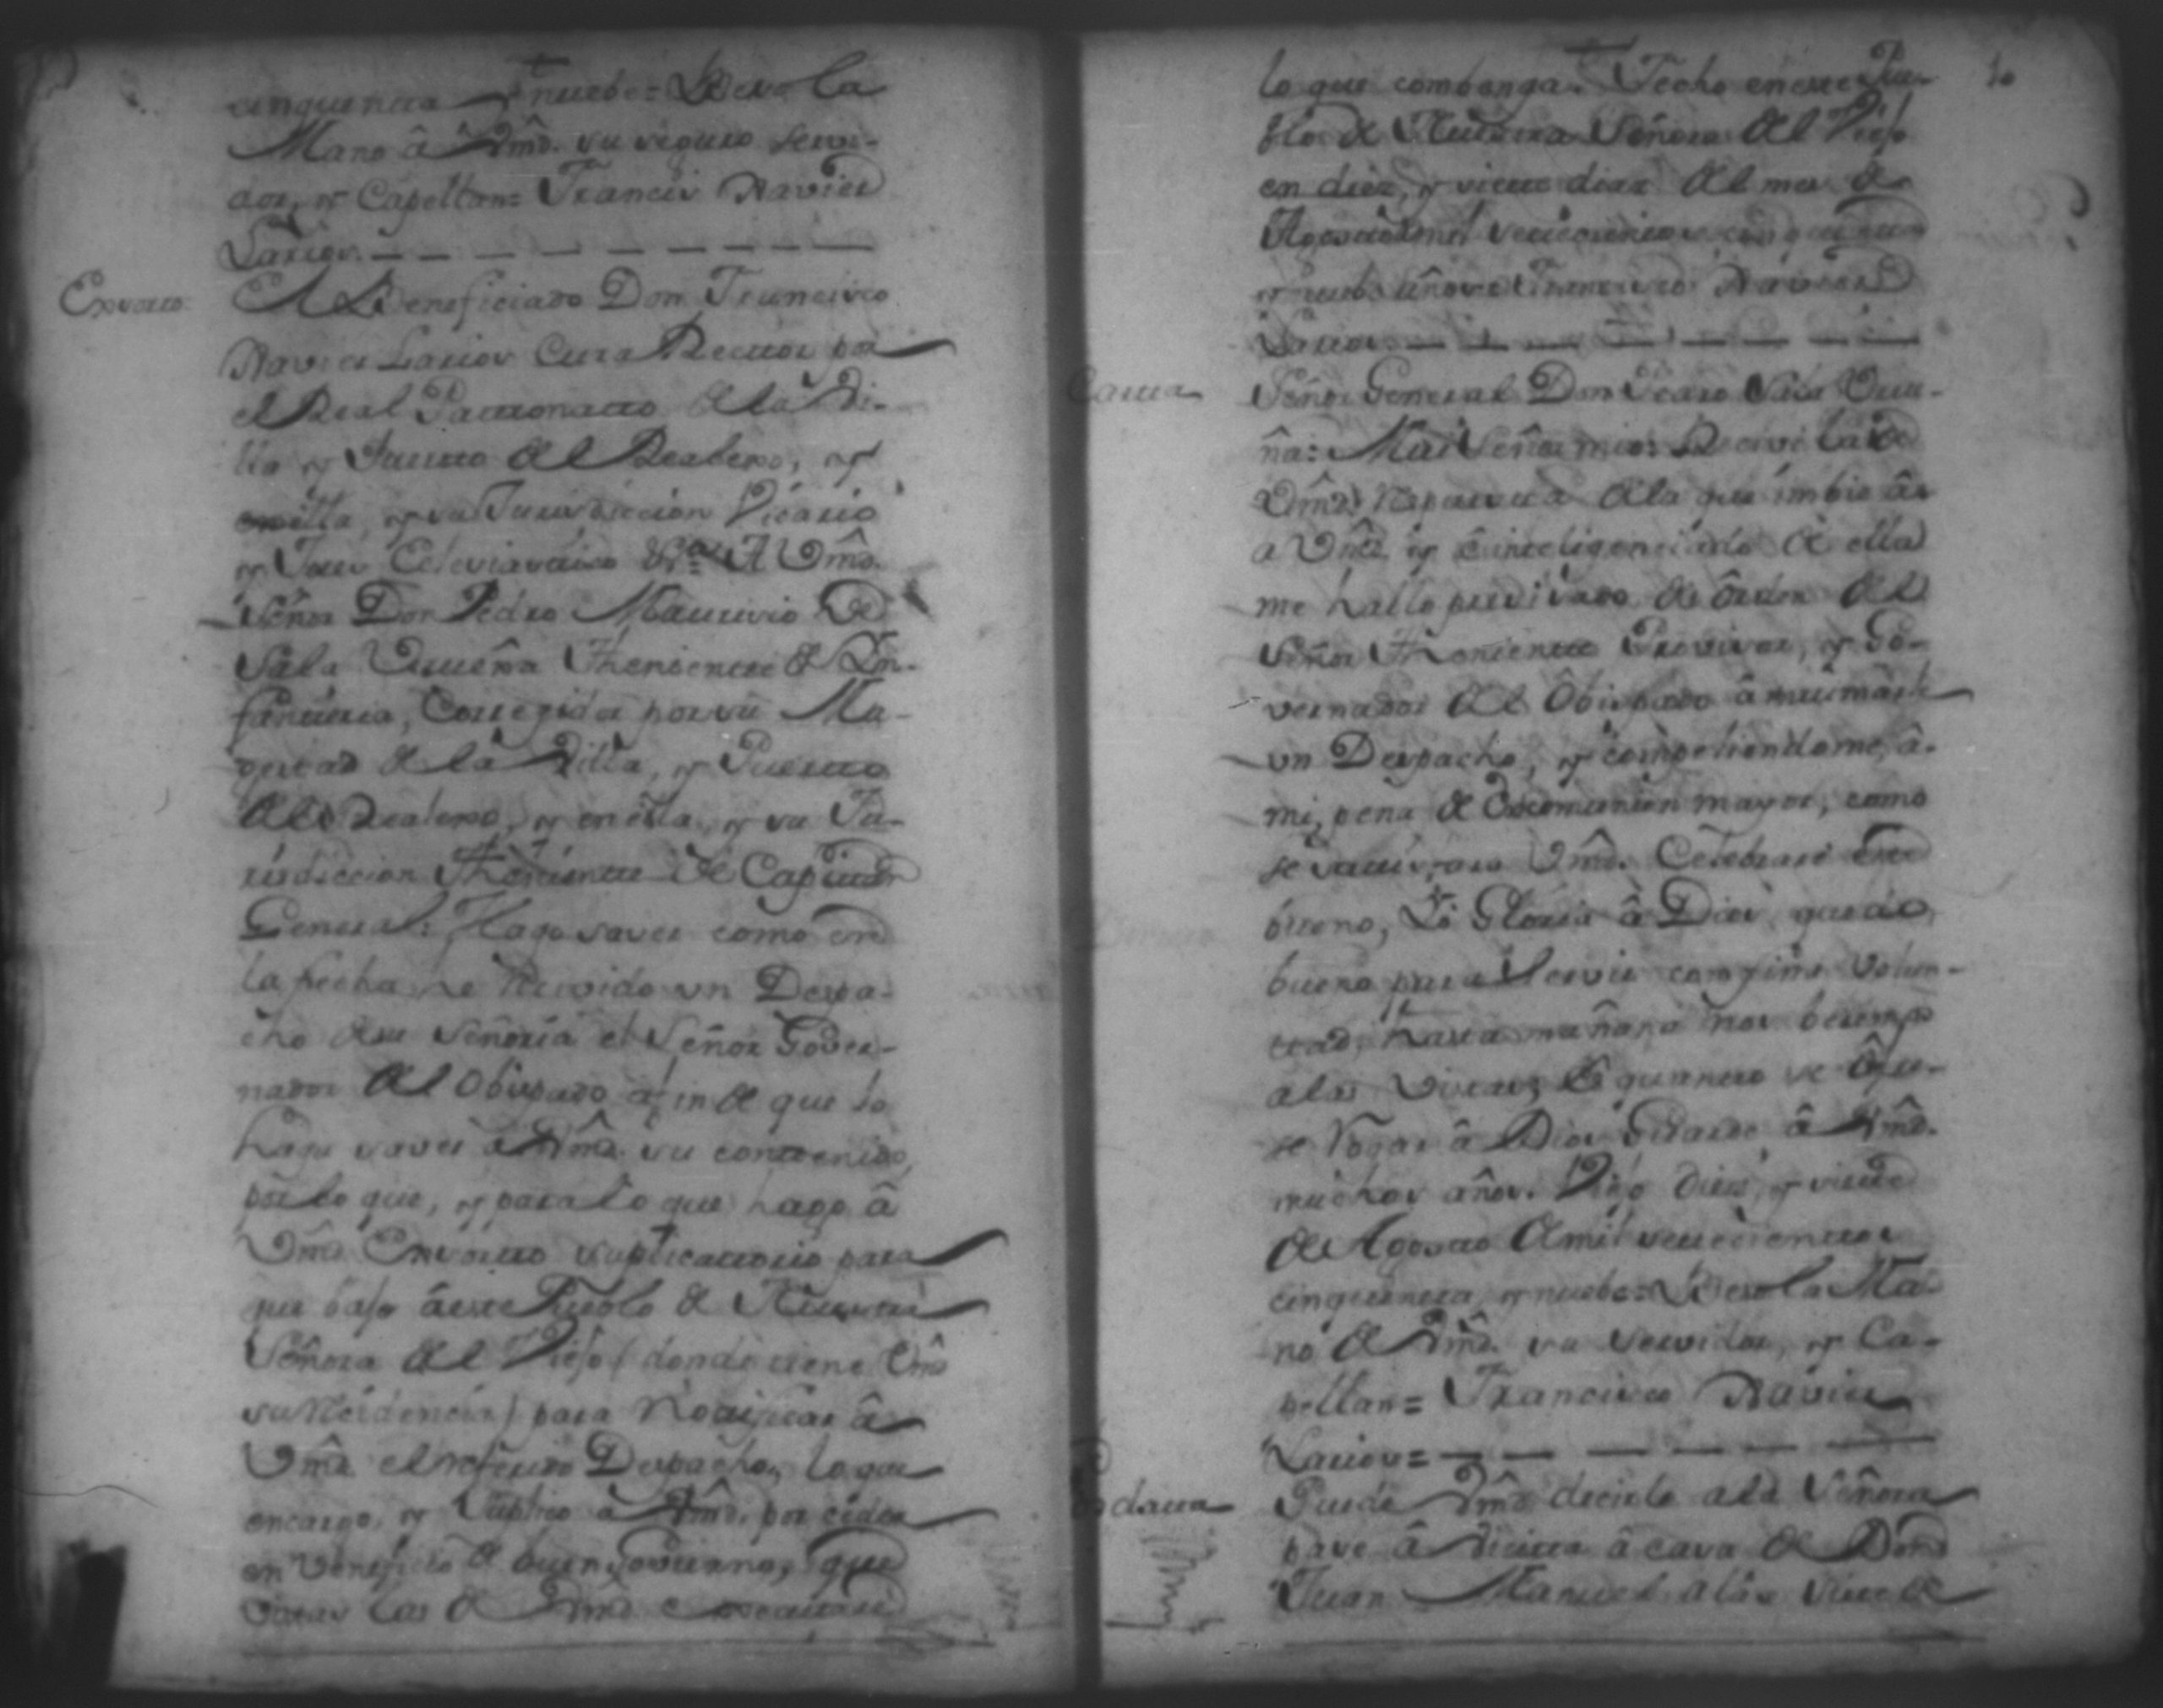 cinquenta y nuebe= Beso la
Mano â Vmd. su seguro servi-
dor, y Capellan= Francis Xavier
Larios.
Exsorto.
El Beneficiado Don Francisco
Xavier Larios Cura Rector por
el Real Patronatto de la Vi-
lla y Puertto del Realexo, y
en ella, y su Jurisdiccion Vicario
y Juez Eclesiastico &ª A Vmd.
Señor Don Pedro Mauricio de
Sala Theniente de Yn-
fanteria, Corregidor por su Ma-
gestad de la Villa, y Puertto
del Realexo, y en ella, y su Ju-
risdiccion Theniente de Capitan
General: Hago saver como en
la fecha he recivido un Despa-
cho de su Señoria el Señor Gover-
nador del Obispado a fin de que lo
haga saver a Vmd. su conttenido,
por lo que, y para lo que hago â
Vmd. Exsortto suplicattorio para
que baje â este Pueblo de Nuestra
Señora del Viejo (donde tiene Vmd.
su Residencia) para Notificar â
Vmd. el referido Despacho, lo que
encargo, y Suplico a Vmd. por ceder
en Veneficio de buen Govierno, que
las de Vmd. executare
lo que combenga. Fecho en este Pue-
blo de Nuestra Señora del Viejo
en diez, y siete dias del mes de
Agosto de mil settecientos cinquenta
y nuebe años. Francisco Xavier
Larios.
Cartta
Señor General Don Pedro Sala
Mui Señor mio: Recivi la de
Vmd. respuesta de la que imbie
a Vmd. y inteligenciado de ella
me hallo precisado de ôrden del
Señor Theniente Provisor, y Go-
vernador del Obispado
un Despacho, y compeliendome â
mi, pena de Excomunion mayor, como
se Vmd. Celebraré estè
bueno, Yo Gloria â Dios quedo
bueno para Servir con fina Volun-
ttad, hasta mañana nos beremos
a las Visitas, Es quanto se ôfre-
se Rogar â Dios Guarde â Vmd.
muchos años. Viejo diez, y siete
de Agosto de mil settecientos
cinquenta, y nuebe= Beso la Ma-
no de Vmd. su Servidor, y Ca-
pellan= Francisco Xavier
Larios=
Posdatta
Puede Vmd. decirle a la Señora
pase â Visitta â casa de Don
Juan Manuel a las